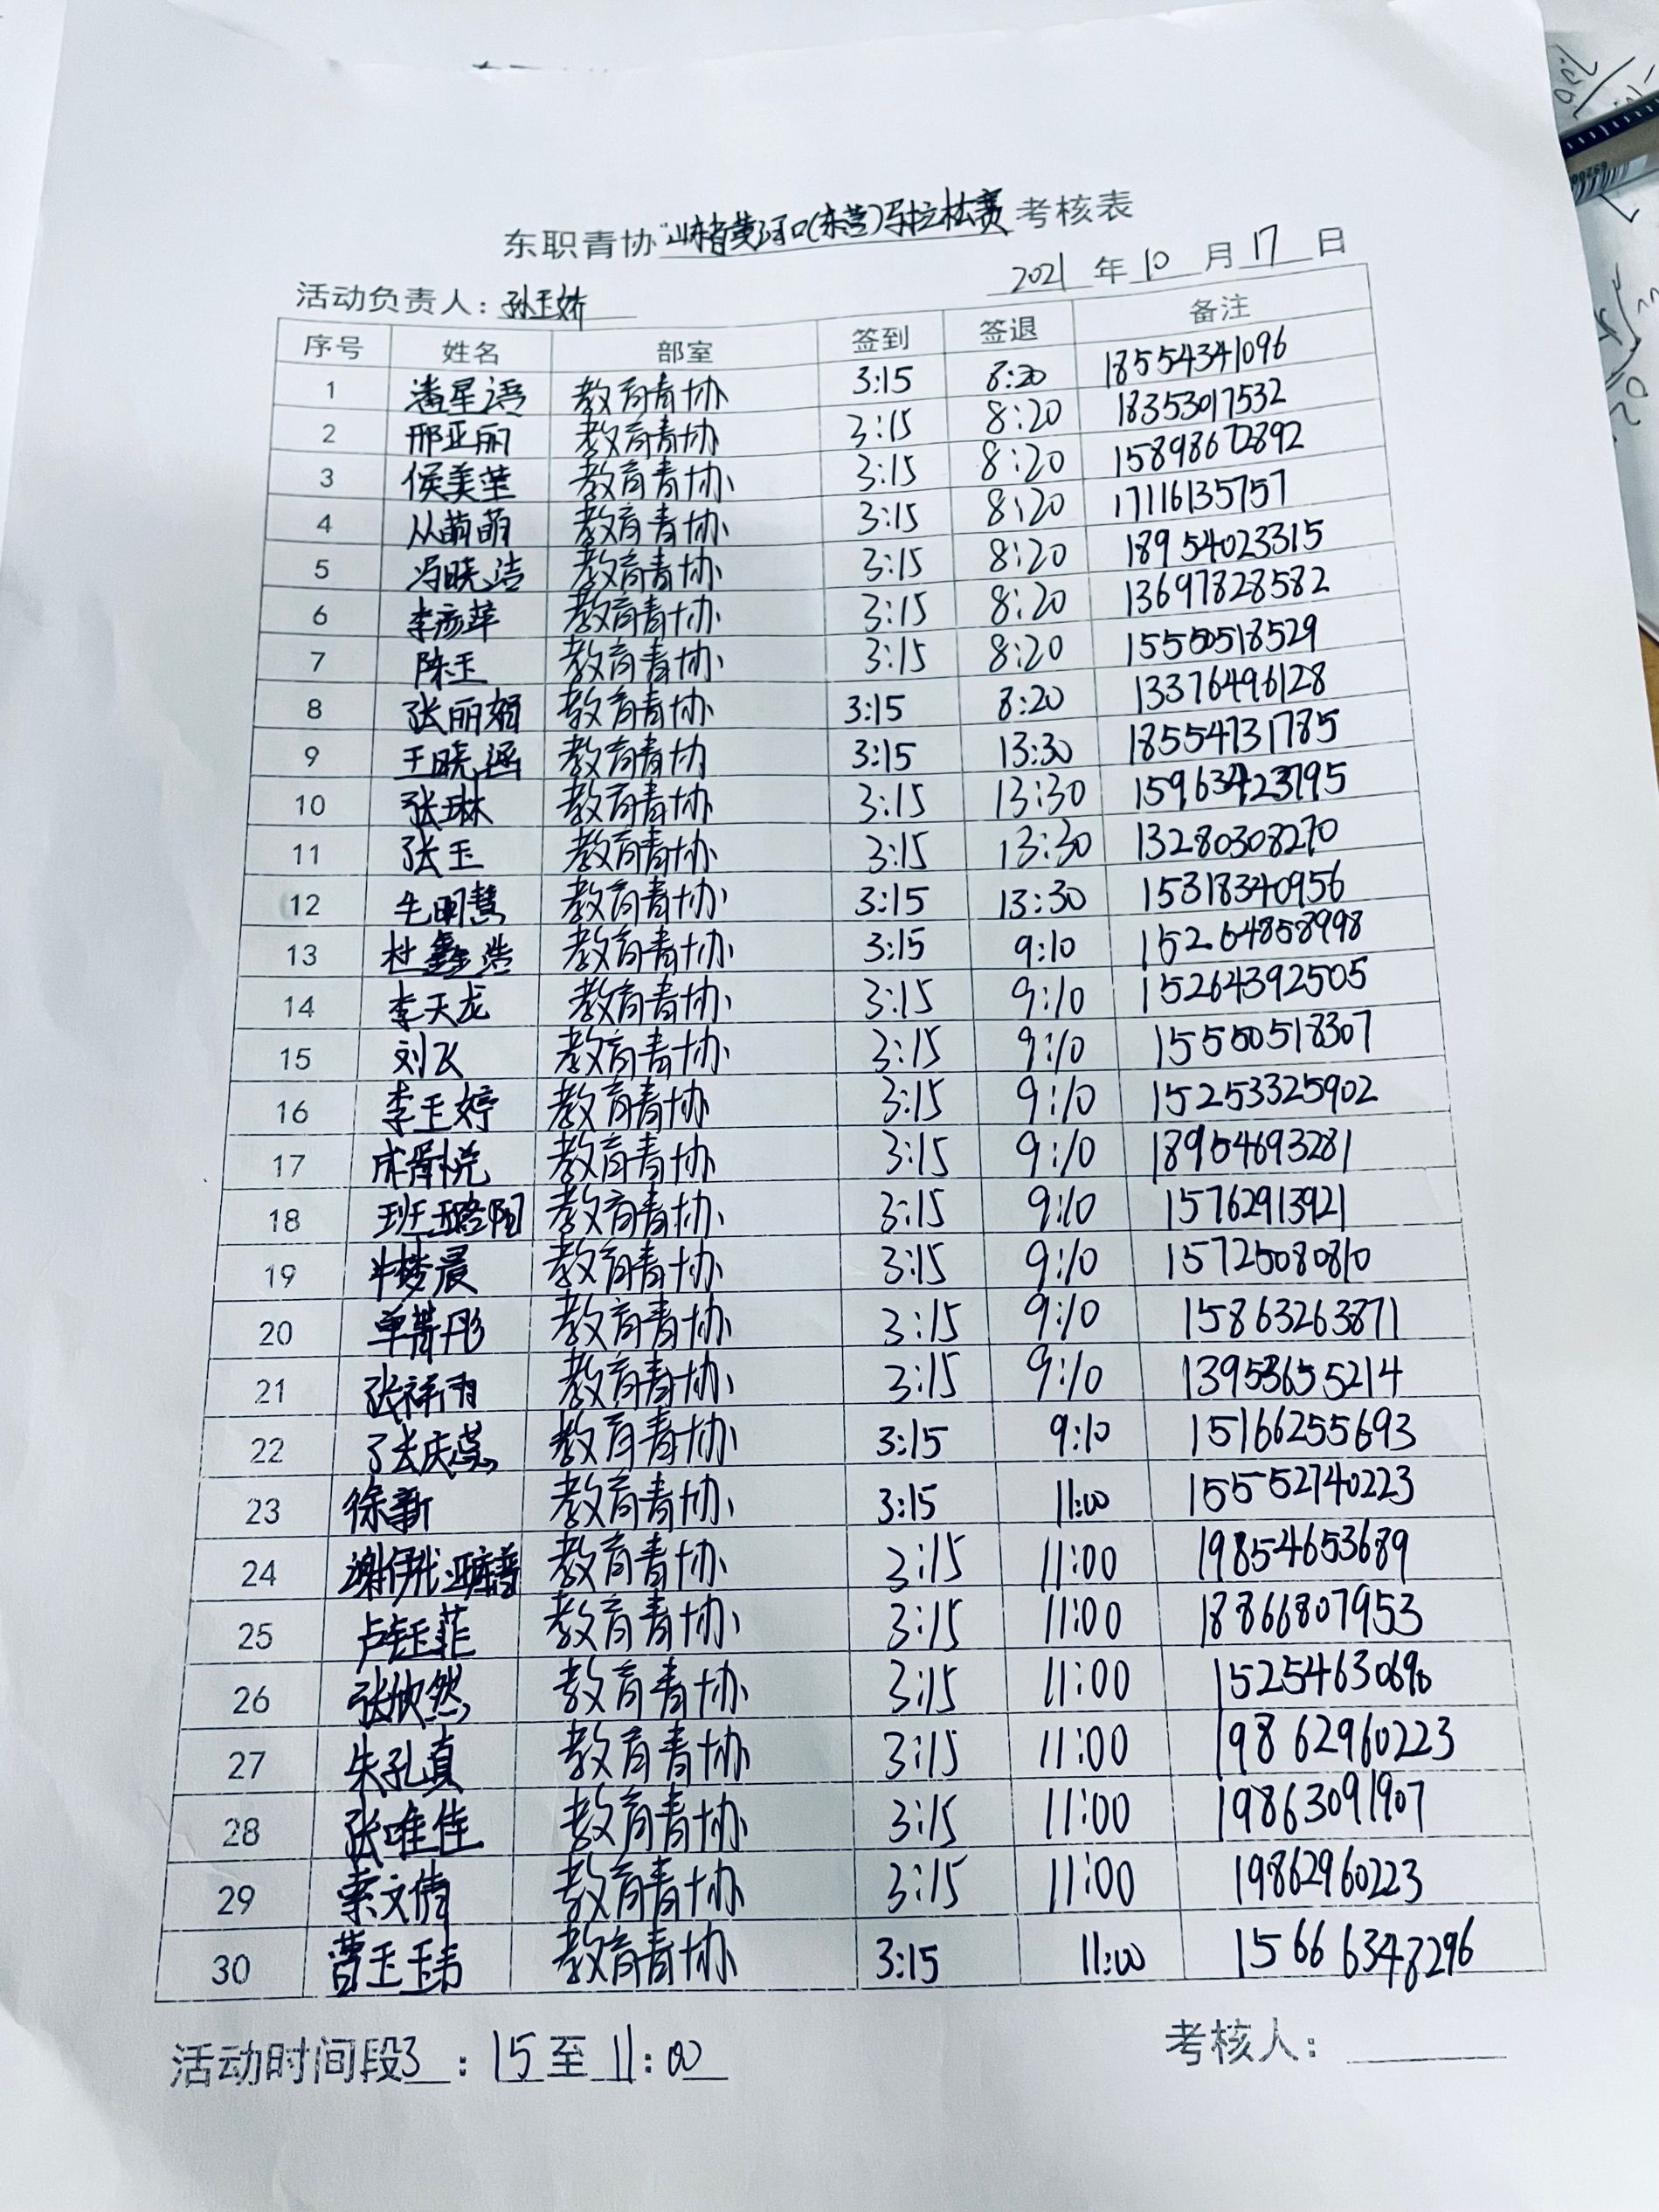 东职青协"山东省黄河口(东营)马拉松赛考核表
2021年10月17日
活动负责人：孙玉娇
序号 姓名 部室 签到 签退 备注
1 潘星语 教育青协 3:15 8:20 18554341096
2 邢亚丽 教育青协 3:15 8:20 18353017532
3 侯美莹 教育青协 3:15 8:20 15898672892
4 从萌萌 教育青协 3:15 8:20 17116135757
5 冯晓洁 教育青协 3:15 8:20 18954023315
6 李彦萍 教育青协 3:15 8:20 13697828582
7 陈玉 教育青协 3:15 8:20 15550518529
8 张丽娟 教育青协 3:15 8:20 13376496128
9 王晓涵 教育青协 3:15 13:30 18554731785
10 张琳 教育青协 3:15 13:30 15963423795
11 张玉 教育青协 3:15 13:30 13280308270
12 牛明慧 教育青协 3:15 13:30 15318340956
13 杜鑫浩 教育青协 3:15 9:10 15264858998
14 李天龙 教育青协 3:15 9:10 15264392505
15 刘飞 教育青协 3:15 9:10 15550518307
16 李玉婷 教育青协 3:15 9:10 15253325902
17 教育青协 3:15 9:10 18954693281
18 班璐阳 教育青协 3:15 9:10 15762913921
19 牛梦晨 教育青协 3:15 9:10 15725080810
20 单菁彤 教育青协 3:15 9:10 15863263871
21 张祥雨 教育青协 3:15 9:10 13953655214
22 张庆蕊 教育青协 3:15 9:10 15166255693
23 徐新 教育青协 3:15 11:00 15552740223
24 教育青协 3:15 11:00 19854653689
25 卢钰菲 教育青协 3:15 11:00 18866807953
26 张欣然 教育青协 3:15 11:00 15254630690
27 朱孔真 教育青协 3:15 11:00 19862960223
28 张唯佳 教育青协 3:15 11:00 19863091907
29 索文倩 教育青协 3:15 11:00 19862960223
30 曹玉玮 教育青协 3:15 11:00 15666348296
活动时间段3：15至11:00
考核人：